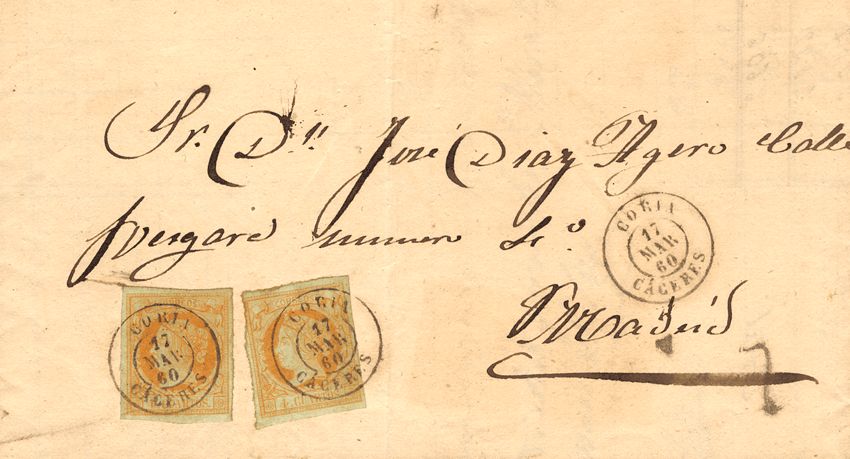 Sr. Dn. José Diaz Agero Calle
Vergara numero
Madrid
CORIA
17
MAR
60
CÁCERES
CORIA
17
MAR
60
CÁCERES
CORIA
17
MAR
60
CÁCERES